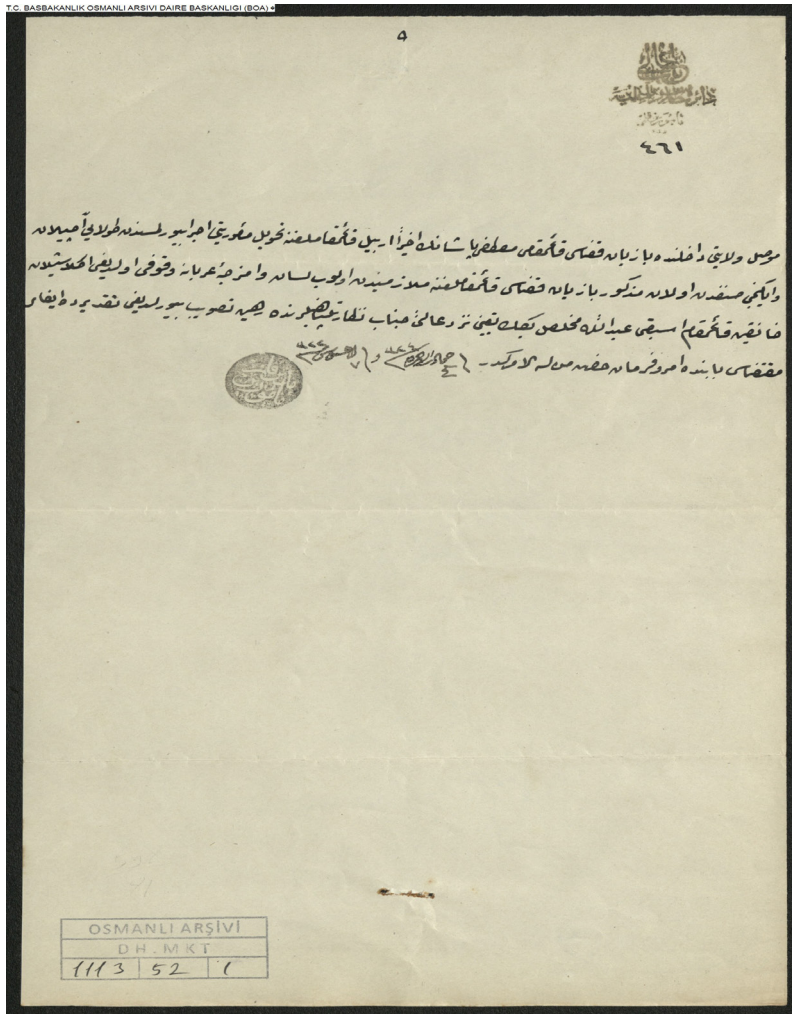 T.C. BASBAKANLIK OSMANLI ARSIVI DAIRE BASKANLIGI (BOA)
٤٦١
موصل ولايتی داخلنده بازيان قضاسی قائمقامی مصطفی پاشانك اخيراً اربيل قائمقاملغنه تحويل مأموريتی اجرا بيورلمسندن طولايی آچيلان
وايكنجی صنفدن اولان مذكور بازيان قضاسی قائمقاملغنه ملازمندن اولوب لسان وامزجۀ عربانه وقوفی اولديغی اكلاشيلان
خانقين قائمقام اسبقی عبدالله مخلص بكك تعيينی نزد عالئ جناب نظارتپناهيلرنده رهين تصويب بيورلديغی تقديرده ايفای
مقتضاسی بابنده امر وفرمان حضرت من له الامركدر
OSMANLI ARŞİVİ
DH.MKT
1113 52 1